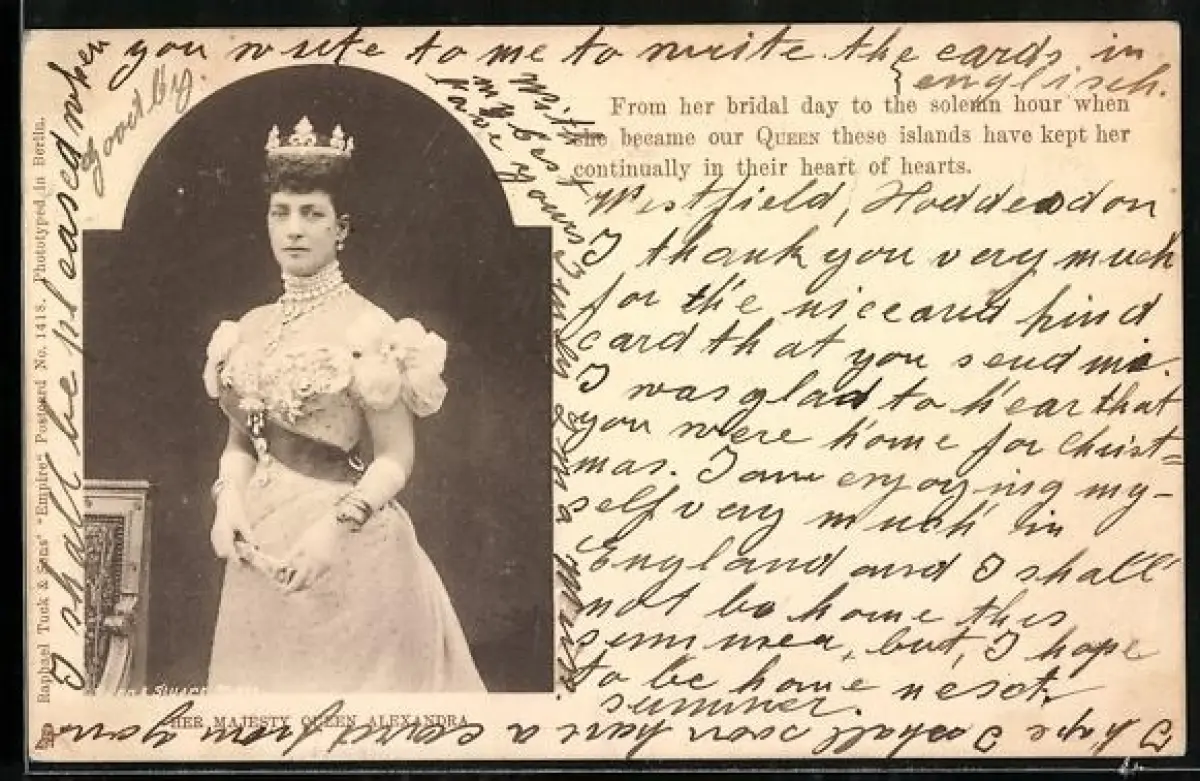 From her bridal day to the solemn hour when
she became our QUEEN these islands have kept her
continually in their heart of hearts.
Westfield, Hoddesdon
I thank you very much
for the nice and kind
card that you send me.
I was glad to hear that
you were home for Christ=
mas. I am enjoying my-
self very much in
England and I shall
not be home this
summer, but, I hope
to be home next
summer.
I hope I shall soon have a card from you
I shall be pleased when
you write to me to write the cards in
englisch.
good by.
With
my best
love yours
HER MAJESTY QUEEN ALEXANDRA
Raphael Tuck & Sons' "Empire" Postcard No. 1418. Phototyped in Berlin.